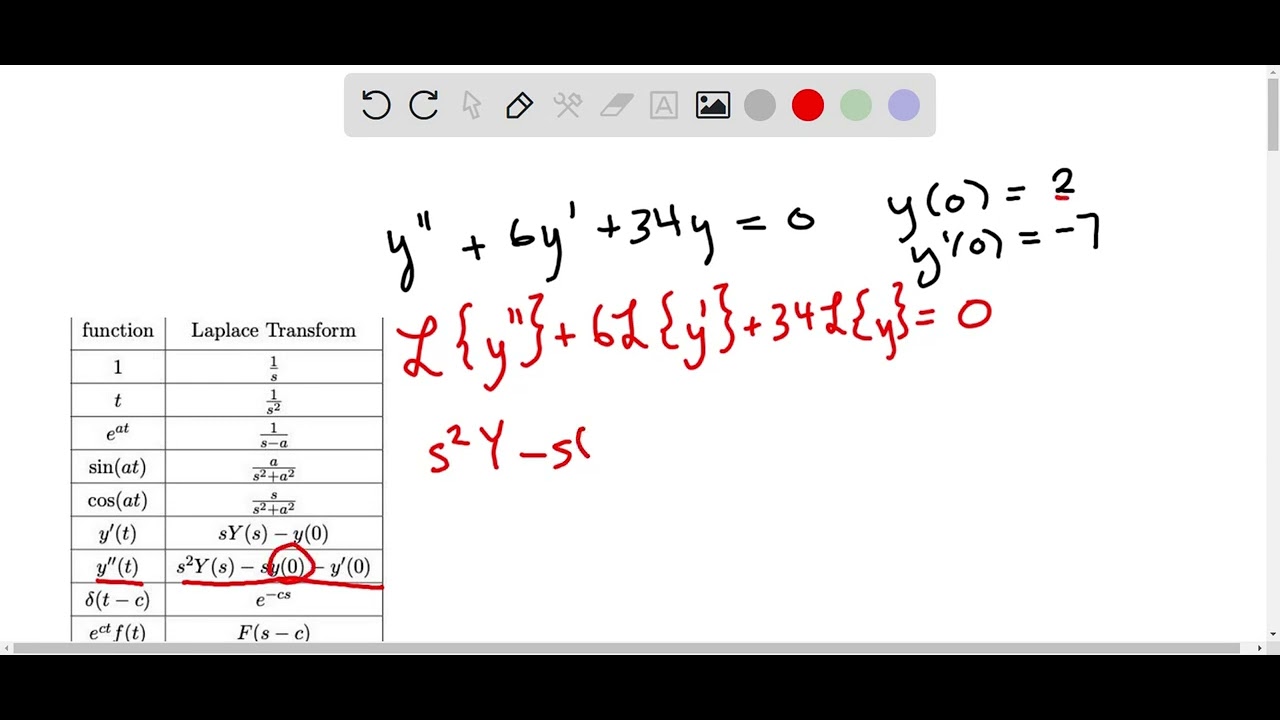 A
y'' + 6y' + 34y = 0
y(0) = 2
y'(0) = -7
ℒ{y''} + 6ℒ{y'} + 34ℒ{y} = 0
s²Y - s(
function Laplace Transform
1 1/s
t 1/s²
e^{at} 1/(s-a)
sin(at) a/(s²+a²)
cos(at) s/(s²+a²)
y'(t) sY(s) − y(0)
y''(t) s²Y(s) − sy(0) − y'(0)
δ(t − c) e^{−cs}
e^{ct}f(t) F(s − c)